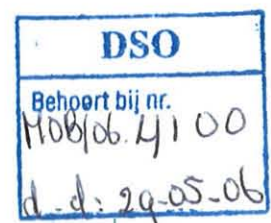 DSO
Behoort bij nr.
MOB/06.4100
d.d: 29-05-06